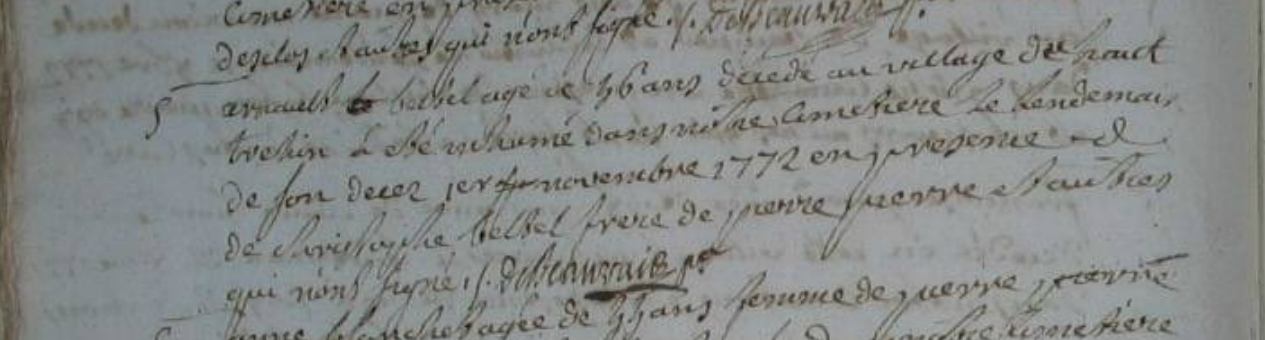 cimetiere en
desclos et autres qui n'ont signé ./. DeBeauvais
5 arnault bebel agé de 46 ans décédé au village de hault
trehin a été inhumé dans nôtre cimetiere le lendemain
de son decez 1er novembre 1772 en presence
de christophe bebel frere de pierre pierre et autres
qui n'ont signé ./. DeBeauvais ptre
anne blanchet agée de ans femme de pierre pierre
cimetiere